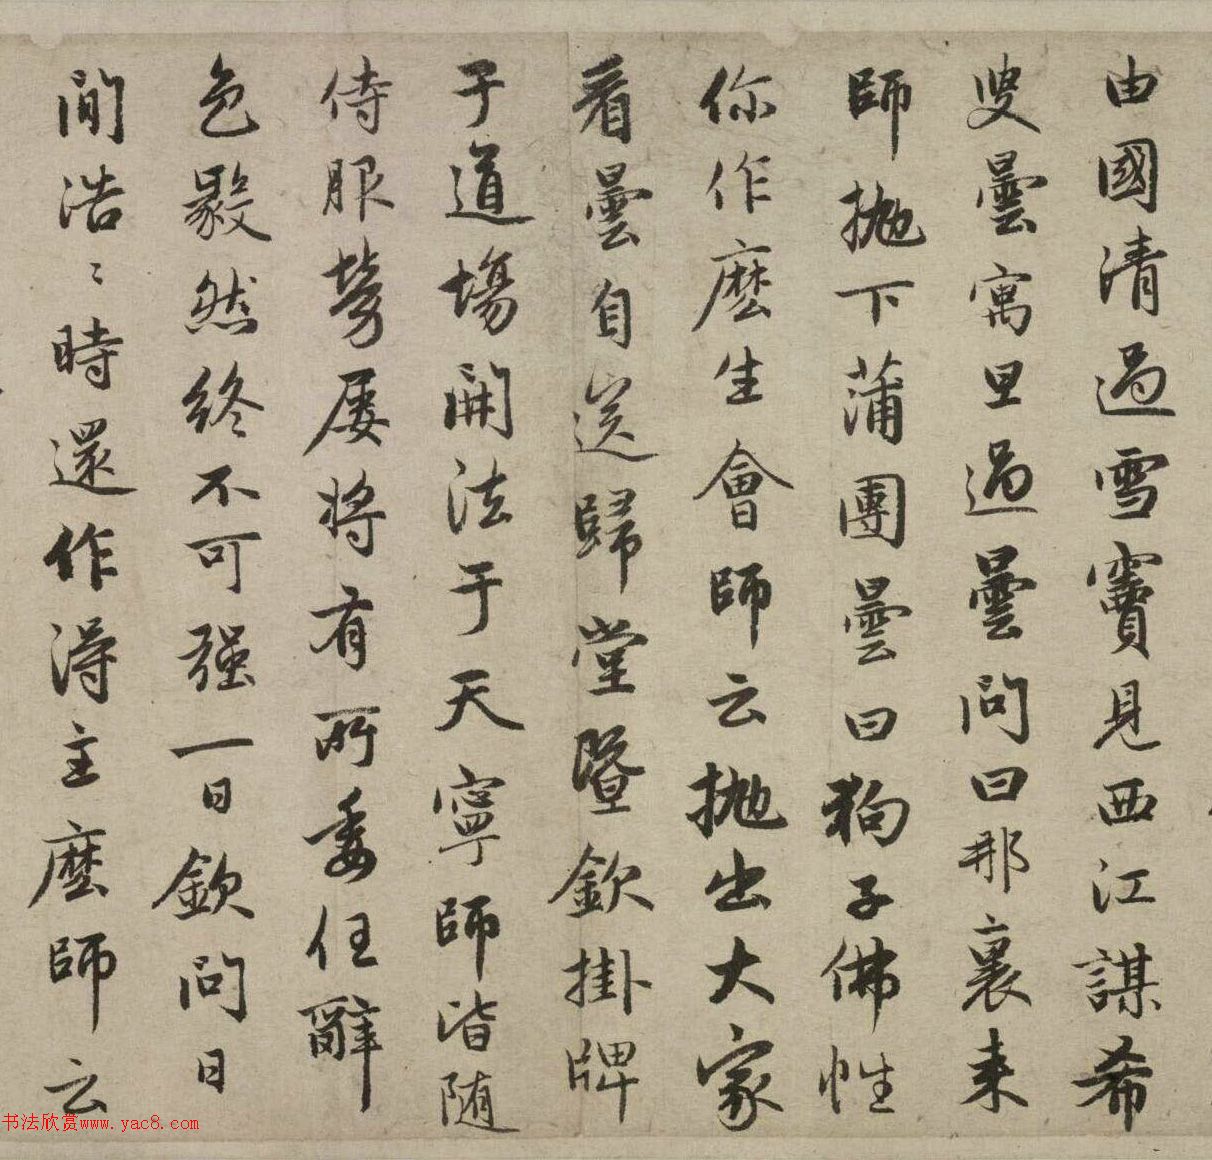 由國清過雪竇見西江謀希
叟曇寓旦過曇問曰那裏来
師抛下蒲團曇曰狗子佛性
你作麽生會師云抛出大家
看曇自送歸堂暨欽掛牌
于道場開法于天寧師皆随
侍服勞屡將有所委任辭
色毅然終不可强一日欽問日
間浩〻時還作得主麽師云
书法欣赏www.yac8.com